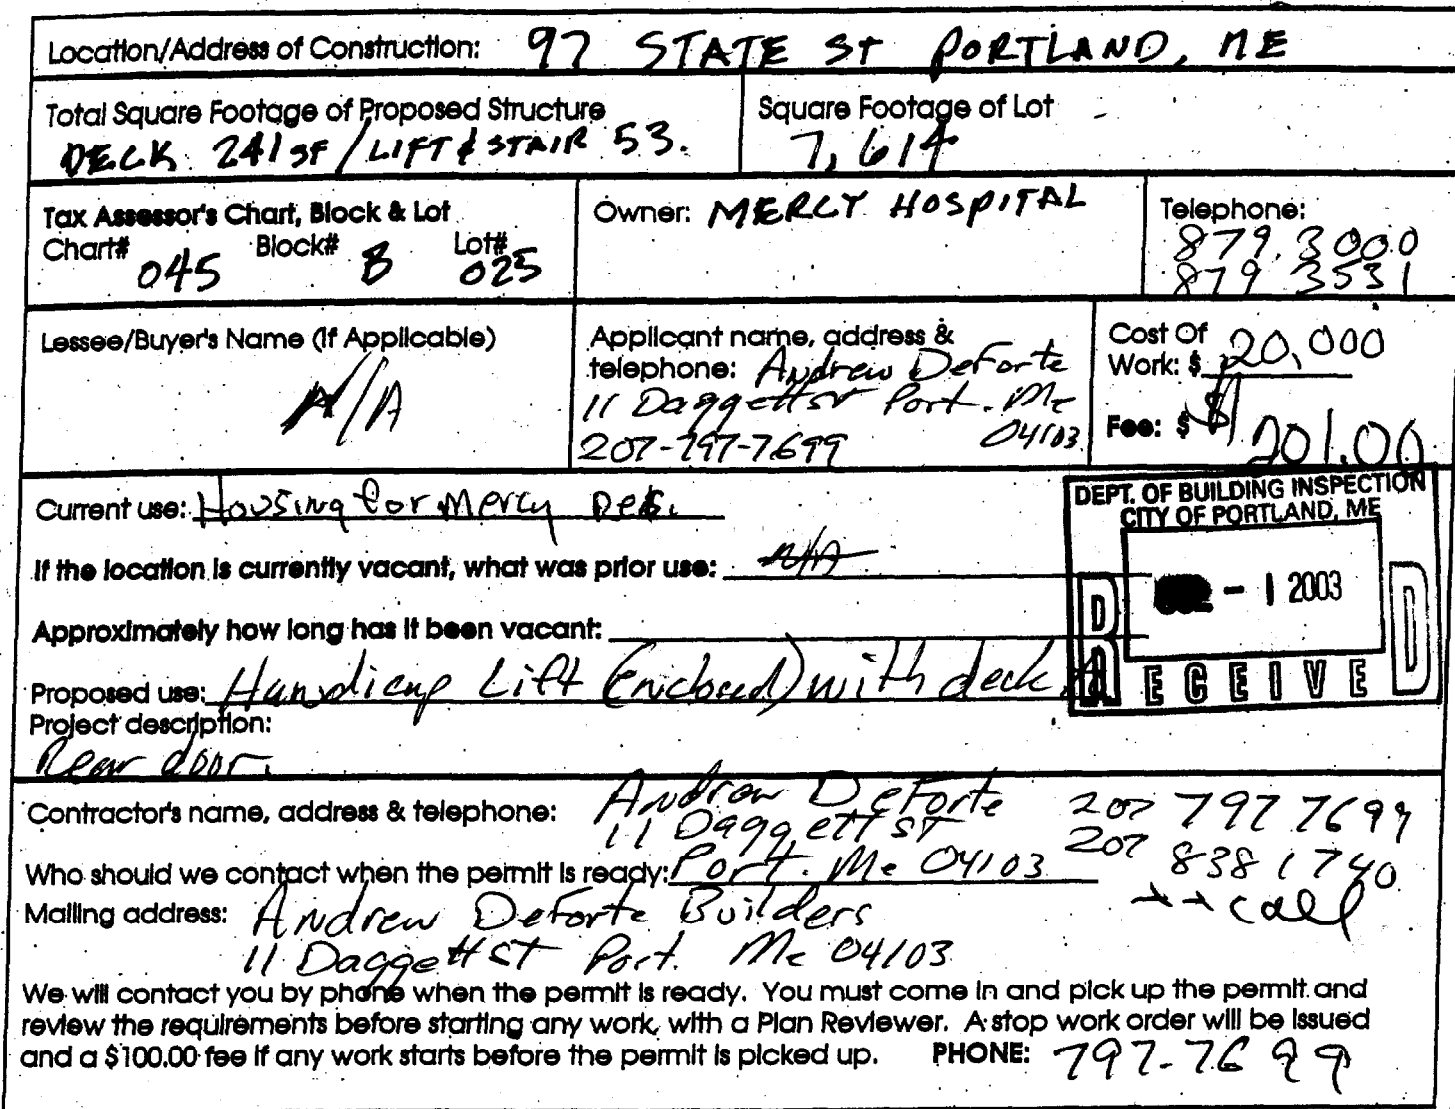 Location/Address of Construction: 97 STATE St PORTLAND, ME
Total Square Footage of Proposed Structure
DECK 241 SF / LIFT & STAIR 53.
Square Footage of Lot
7,614
Tax Assessor's Chart, Block & Lot
Chart# 045 Block# B Lot# 025
Owner: MERCY HOSPITAL
Telephone:
879.3000
879 3531
Lessee/Buyer's Name (If Applicable)
N/A
Applicant name, address &
telephone: Andrew DeForte
11 Daggett St Port. Me
207-797-7699 04103
Cost Of
Work: $ 20,000
Fee: $ 201.00
Current use: Housing for Mercy
If the location is currently vacant, what was prior use: N/A
Approximately how long has it been vacant:
Proposed use: Handicap Lift (Enclosed) with deck
Project description:
Rear door.
DEPT. OF BUILDING INSPECTION
CITY OF PORTLAND, ME
- 1 2003
RECEIVED
Contractor's name, address & telephone: Andrew DeForte 207 797 7699
11 Daggett ST 207 838 1740
Who should we contact when the permit is ready: Port. Me 04103
Mailing address: Andrew DeForte Builders call
11 Daggett ST Port. Me 04103
We will contact you by phone when the permit is ready. You must come in and pick up the permit and
review the requirements before starting any work, with a Plan Reviewer. A stop work order will be issued
and a $100.00 fee if any work starts before the permit is picked up. PHONE: 797-7699